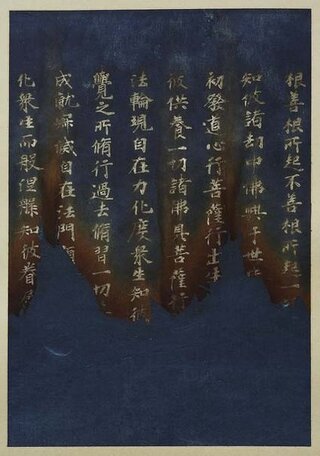 根善根所起不善根所起一
知彼諸劫中佛興于世
初發道心行菩薩行出生
彼供養一切諸佛具菩薩行
法輪現自在力化度衆生知彼
覺之所脩行過去脩習一切
成就寂滅自在法門
化衆生而般涅槃知彼眷